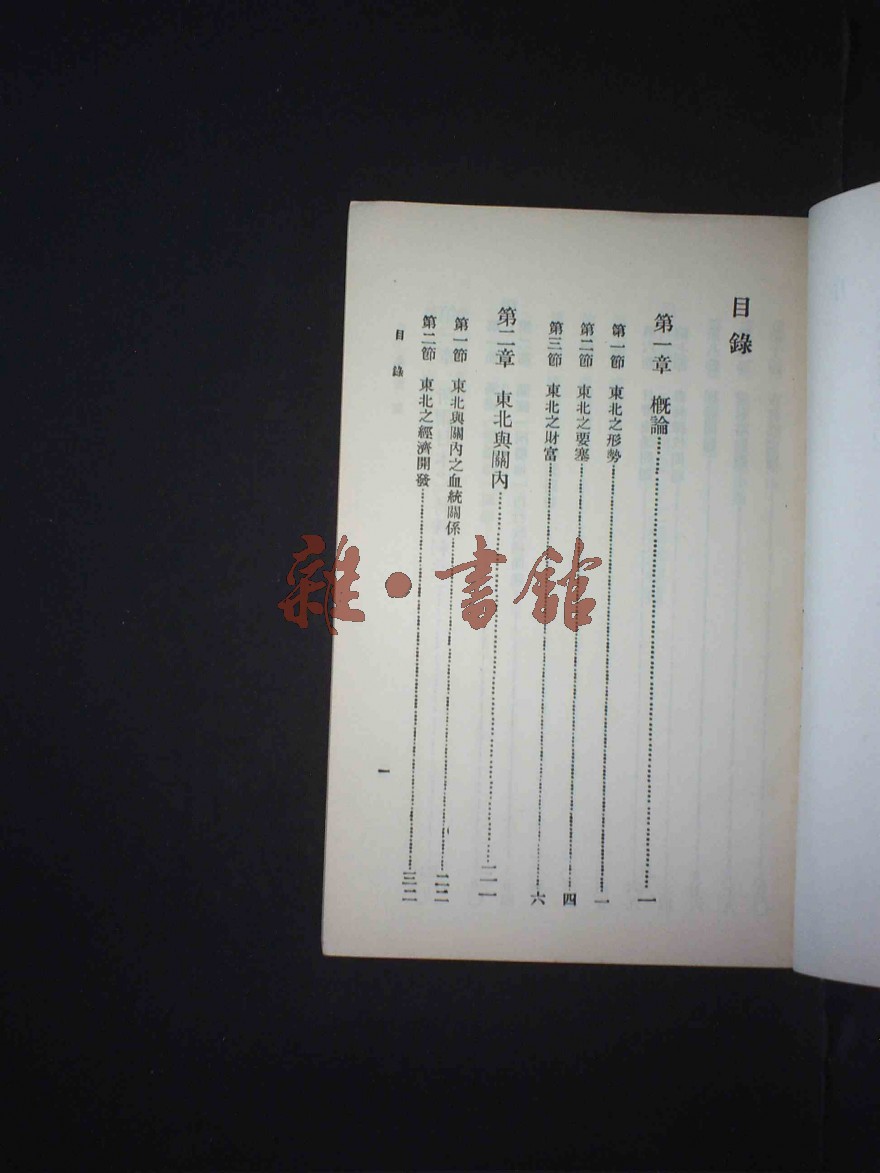 目錄
第一章 概論……一
第一節 東北之形勢……一
第二節 東北之要塞……四
第三節 東北之財富……六
第二章 東北與關內……二一
第一節 東北與關內之血統關係……二二
第二節 東北之經濟開發……三二
目錄
一
雜·書館